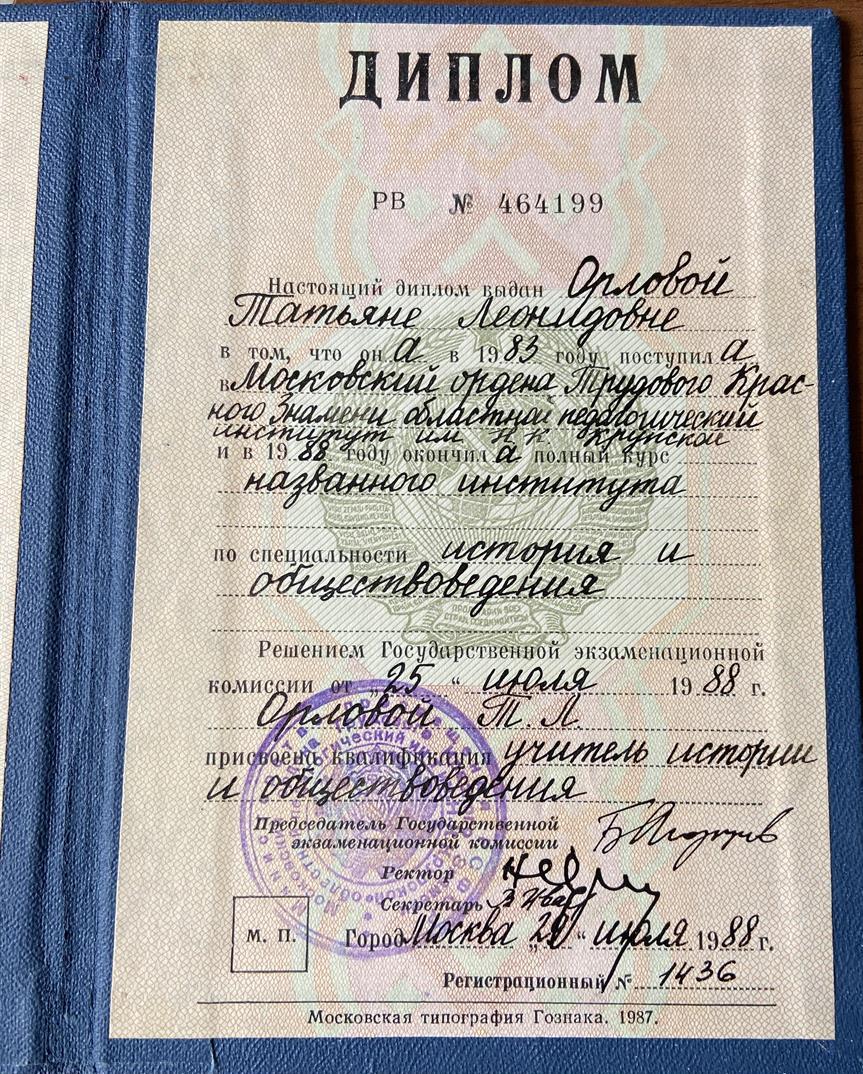 ДИПЛОМ
РВ № 464199
Настоящий диплом выдан Орловой
Татьяне Леонидовне
в том, что он а в 1983 году поступил а
в Московский ордена Трудового Крас-
ного Знамени областной педагогический
институт им Н.К. Крупской
и в 1988 году окончил а полный курс
названного института
по специальности история и
обществоведения
Решением Государственной экзаменационной
комиссии от „25“ июля 1988 г.
Орловой Т. Л.
присвоена квалификация учитель истории
и обществоведения
Председатель Государственной
экзаменационной комиссии
Ректор
Секретарь
М. П.
Город Москва „ “ июля 1988 г.
Регистрационный № 1436
Московская типография Гознака. 1987.